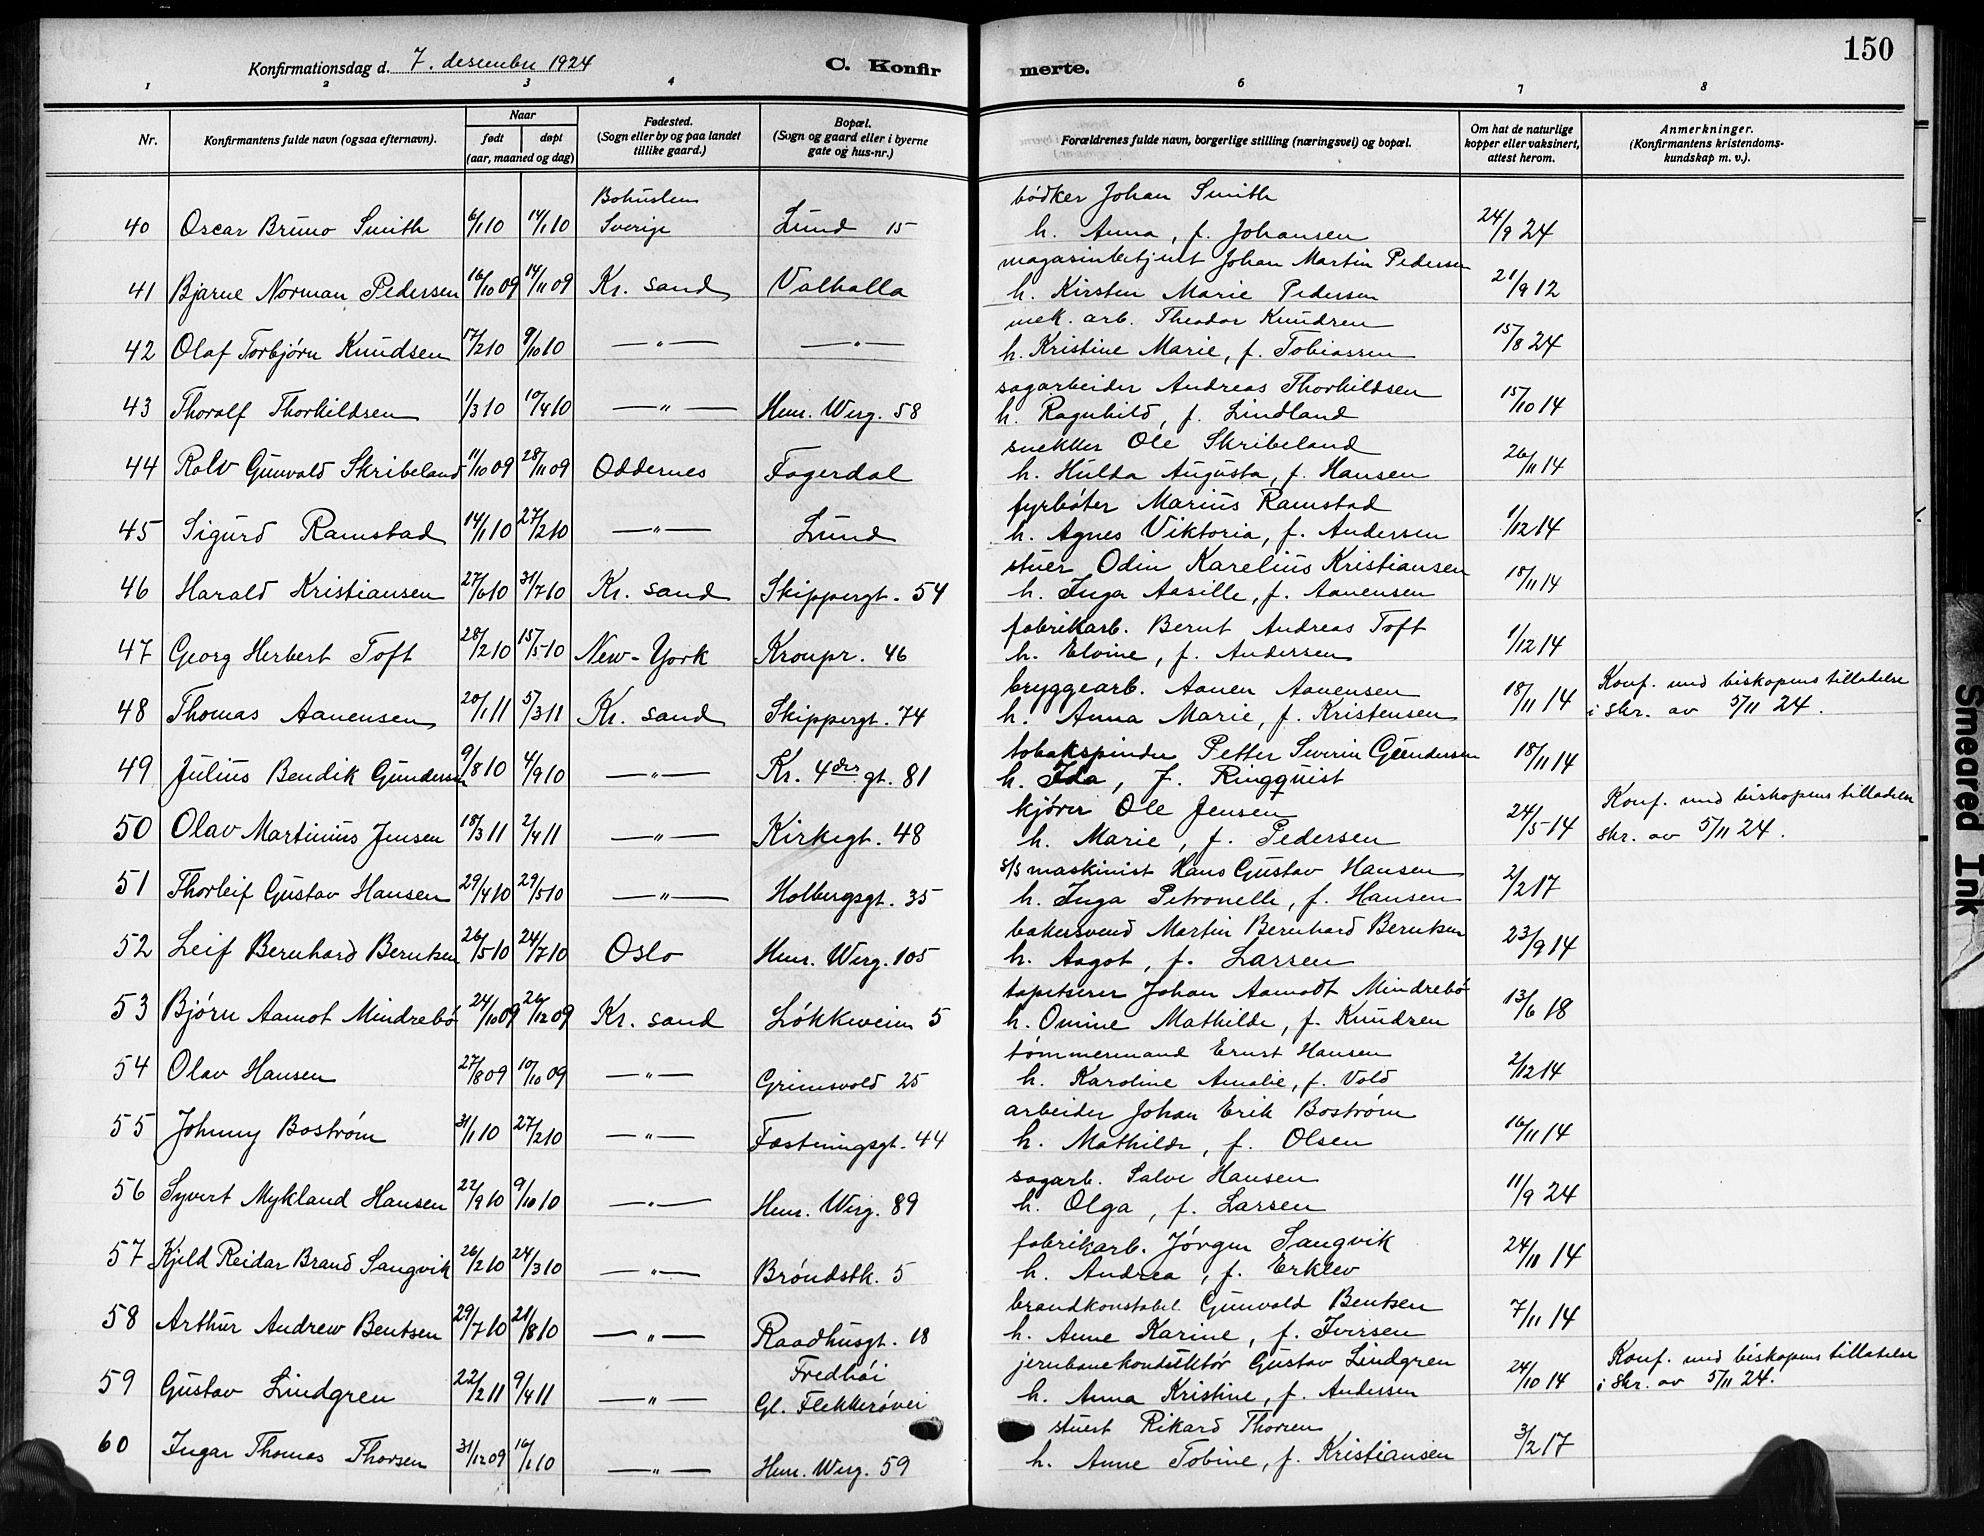 150
Konfirmationsdag d. 7. desember 1924
C. Konfir merte.
1 2 3 4 5 6 7 8
Nr. Konfirmantens fulde navn (ogsaa efternavn). Naar født døpt (aar, maaned og dag) Fødested. (Sogn eller by og paa landet tillike gaard.) Bopæl. (Sogn og gaard eller i byerne gate og hus-nr.) Forældrenes fulde navn, borgerlige stilling (næringsvei) og bopæl. Om hat de naturlige kopper eller vaksinert, attest herom. Anmerkninger. (Konfirmantens kristendoms-kundskap m. v.).
Bohuslen bødker Johan Smith
40 Oscar Bruno Smith 6/1 10 14/1 10 Sverige Lund 15 h. Anna, f. Johansen 24/9 24
magasinbetjent Johan Martin Pedersen
41 Bjarne Norman Pedersen 16/10 09 14/11 09 Kr. sand Valhalla h. Kirsten Marie Pedersen 21/9 12
mek. arb. Theodor Knudsen
42 Olaf Torbjørn Knudsen 17/2 10 9/10 10 —„— —„— h. Kristine Marie, f. Tobiassen 15/8 24
sagarbeider Andreas Thorkildsen
43 Thoralf Thorkildsen 1/3 10 10/4 10 —„— Henr. Werg. 58 h. Ragnhild, f. Lindland 15/10 14
snekker Ole Skribeland
44 Rolv Gunvald Skribeland 11/10 09 28/11 09 Oddernes Fagerdal h. Hulda Augusta, f. Hansen 26/11 14
fyrbøter Marius Ramstad
45 Sigurd Ramstad 14/1 10 27/2 10 —„— Lund h. Agnes Viktoria, f. Andersen 1/12 14
stuer Odin Karelius Kristiansen
46 Harald Kristiansen 27/6 10 31/7 10 Kr. sand Skippergt. 54 h. Inga Aasille, f. Aanensen 18/11 14
fabrikarb. Bernt Andreas Toft
47 Georg Herbert Toft 28/2 10 15/5 10 New-York Kronpr. 46 h. Elvine, f. Andersen 1/12 14
bryggearb. Aanen Aanensen Konf. med biskopens tilladelse
48 Thomas Aanensen 20/1 11 5/3 11 Kr. sand Skippergt. 74 h. Anna Marie, f. Kristensen 18/11 14 i skr. av 5/11 24.
tobakspinder Petter Severin Gundersen
49 Julius Bendik Gundersen 9/8 10 4/9 10 —„— Kr. 4des gt. 81 h. Ida, f. Ringqvist 18/11 14
kjører Ole Jensen Konf. med biskopens tilladelse
50 Olav Martinius Jensen 18/3 11 2/4 11 —„— Kirkegt. 48 h. Marie, f. Pedersen 24/5 14 skr. av 5/11 24.
s/s maskinist Hans Gustav Hansen
51 Thorleif Gustav Hansen 29/4 10 29/5 10 —„— Holbergsgt. 35 h. Inga Petronelle, f. Hansen 2/2 17
bakersvend Martin Bernhard Berntsen
52 Leif Bernhard Berntsen 26/5 10 24/7 10 Oslo Henr. Werg. 105 h. Aagot, f. Larsen 23/9 14
tapetserer Johan Aamodt Mindrebø
53 Bjørn Aamot Mindrebø 24/10 09 26/12 09 Kr. sand Løkkeveien 5 h. Omine Mathilde, f. Knudsen 13/6 18
tømmermand Ernst Hansen
54 Olav Hansen 27/8 09 10/10 09 —„— Grimsvold 25 h. Karoline Amalie, f. Vold 2/12 14
arbeider Johan Erik Bostrøm
55 Johnny Bostrøm 31/1 10 27/2 10 —„— Fæstningsgt. 44 h. Mathilde, f. Olsen 16/11 14
sagarb. Salve Hansen
56 Syvert Mykland Hansen 22/9 10 9/10 10 —„— Henr. Werg. 89 h. Olga, f. Larsen 11/9 24
fabrikarb. Jørgen Sangvik
57 Kjeld Reidar Brand Sangvik 26/2 10 24/3 10 —„— Brøndstk. 5 h. Andrea, f. Erklev 24/11 14
brandkonstabel Gunvald Bentsen
58 Arthur Andrew Bentsen 29/7 10 21/8 10 —„— Raadhusgt. 18 h. Anne Karine, f. Iversen 7/11 14
Fredhøi jernbanekonduktør Gustav Lindgren Konf. med biskopens tilladelse
59 Gustav Lindgren 22/2 11 9/4 11 —„— Gl. Flekkerøvei h. Anna Kristine, f. Andersen 24/10 14 i skr. av 5/11 24.
stuert Rikard Thorsen
60 Ingar Thomas Thorsen 31/12 09 16/1 10 —„— Henr. Werg. 59 h. Anne Tobine, f. Kristiansen 3/2 17
Smeared Ink